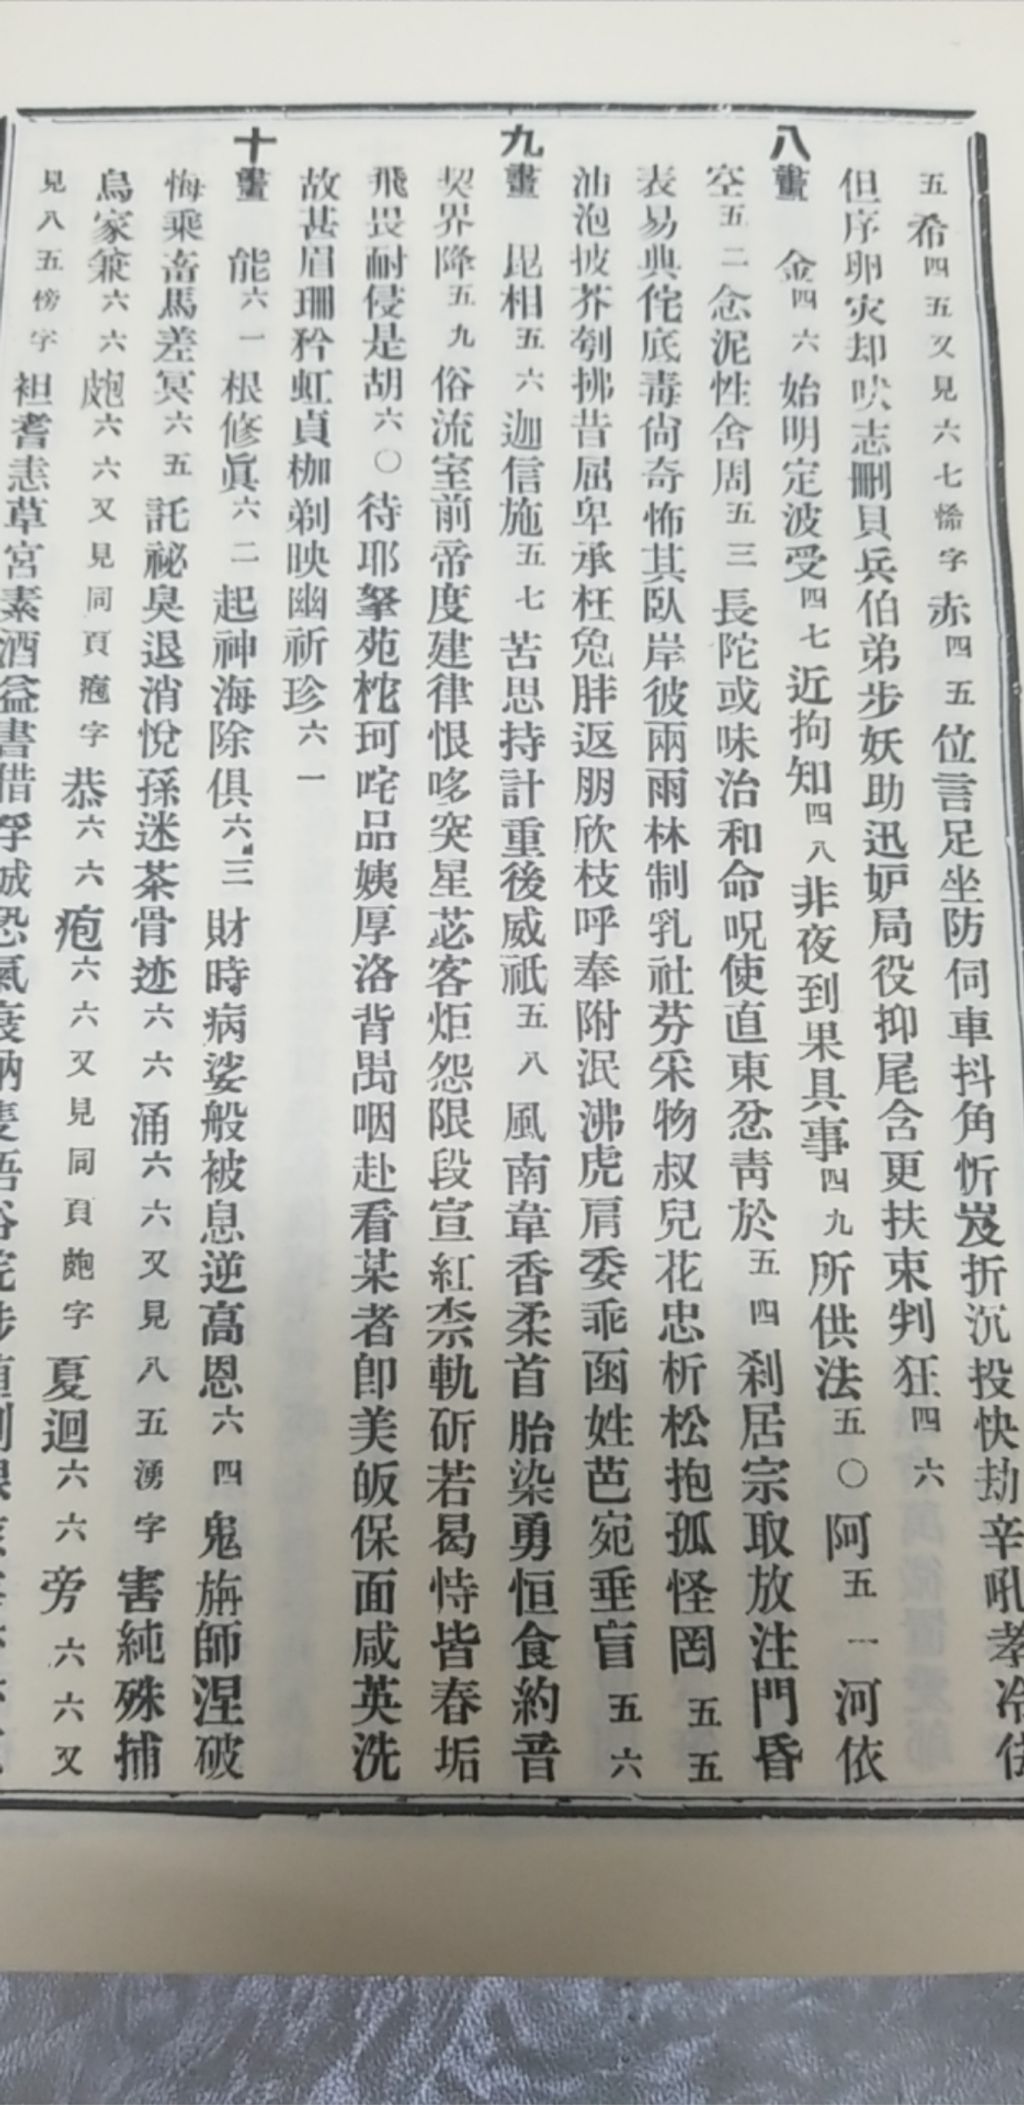 五希四五又見六七悕字赤四五位言足坐防伺車抖角忻岌折沉投快劫辛吼孝冷
但序卵灾却吠志刪貝兵伯弟步妖助迅妒局役抑尾含更扶束判狂四六
八畫金四六始明定波受四七近拘知四八非夜到果具事四九所供法五〇阿五一河依
空五二念泥性舍周五三長陀或味治和命呪使直東忿靑於五四刹居宗取放注門昏
表易典侘底毒尙奇怖其臥岸彼兩雨林制乳社芬采物叔兒花忠析松抱孤怪罔五五
油泡披芥刳拂昔屈卑承枉兔胖返朋欣枝呼奉附泯沸虎肩委乖函姓芭宛垂盲五六
九畫昆相五六迦信施五七苦思持計重後威祇五八風南韋香柔首胎染勇恒食約音
契界降五九俗流室前帝度建律恨哆突星苾客炬怨限段宣紅柰軌斫若曷恃皆春垢
飛畏耐侵是胡六〇待耶拏苑柁珂咤品姨厚洛背咽赴看某者卽美皈保面咸英洗
故甚眉珊矜虹貞枷剃映幽祈珍六一
十畫能六一根修眞六二起神海除俱六三財時病娑般被息逆高恩六四鬼旃師涅破
悔乘畜馬差冥六五託祕臭退消悅孫迷茶骨迹六六涌六六又見八五湧字害純殊捕
烏家兼六六皰六六又見同頁疱字恭六六疱六六又見同頁皰字夏迴六六旁六六又
見八五傍字袒耆恚草宮素酒益書借浮城恐氣衰納隻悟